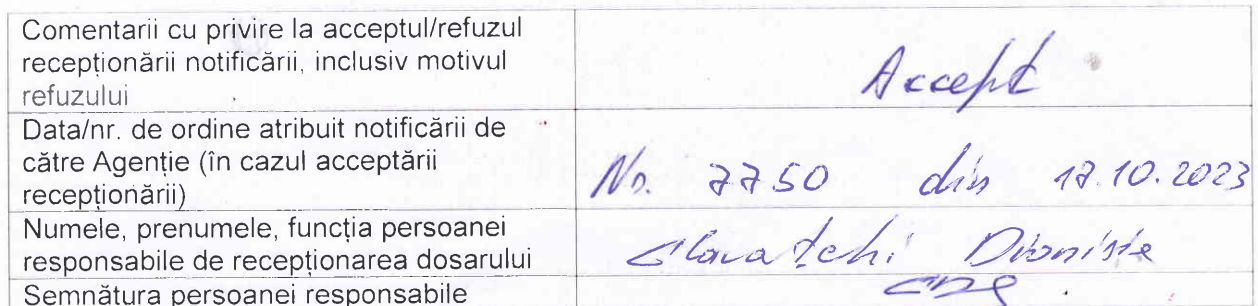 Comentarii cu privire la acceptul/refuzul
recepționării notificării, inclusiv motivul
refuzului
Accept
Data/nr. de ordine atribuit notificării de
către Agenție (în cazul acceptării
recepționării)
No. 7750 din 17.10.2023
Numele, prenumele, funcția persoanei
responsabile de recepționarea dosarului
Dionisie
Semnătura persoanei responsabile